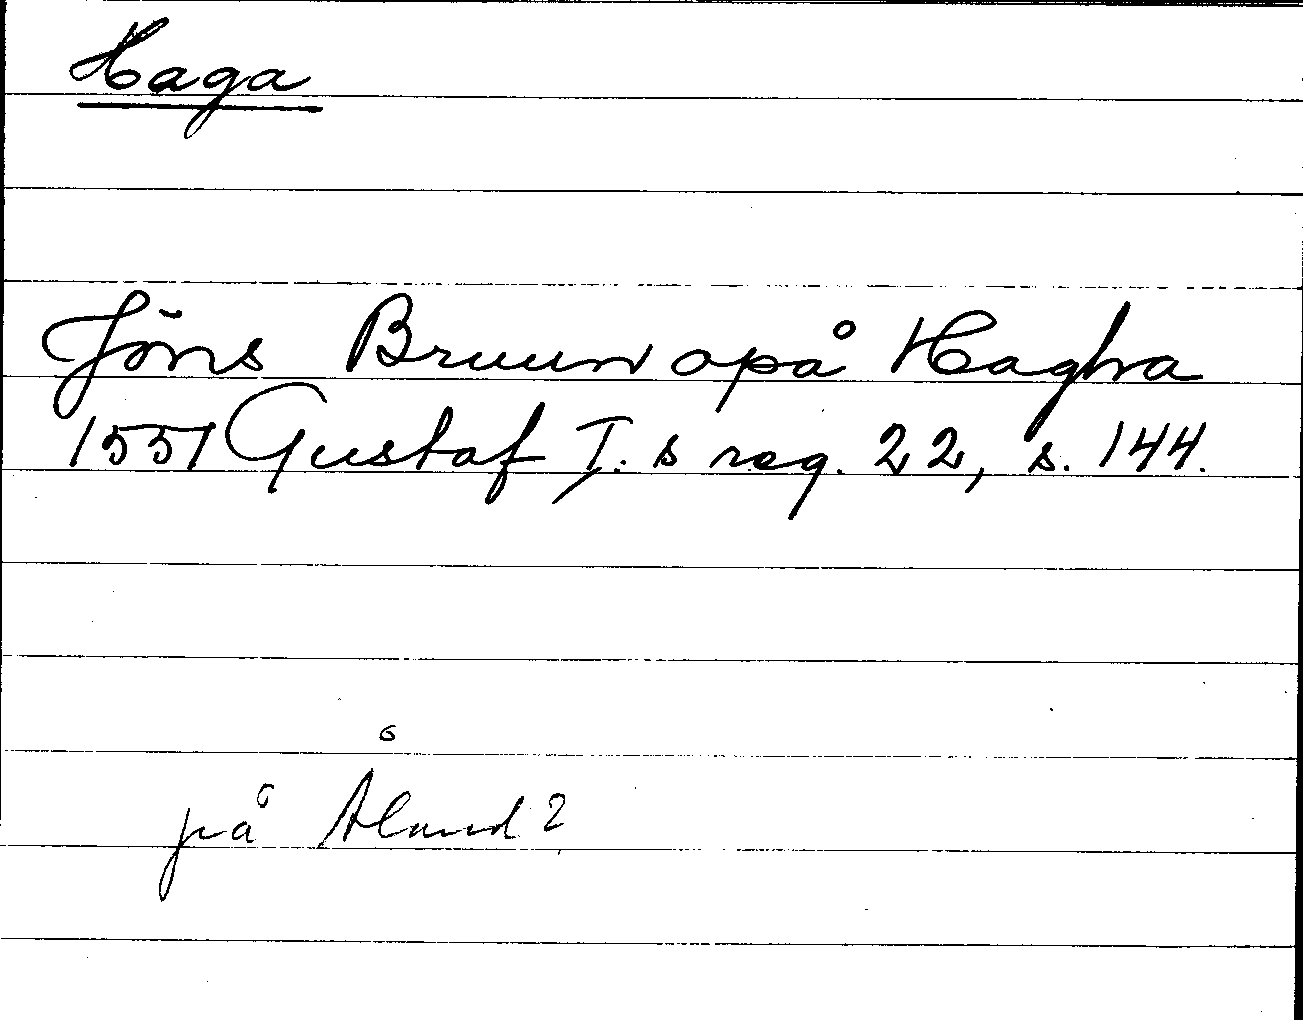 Haga
Jöns Bruun opå Hagha
1551 Gustaf I:s reg. 22, s. 144.
på Åland?